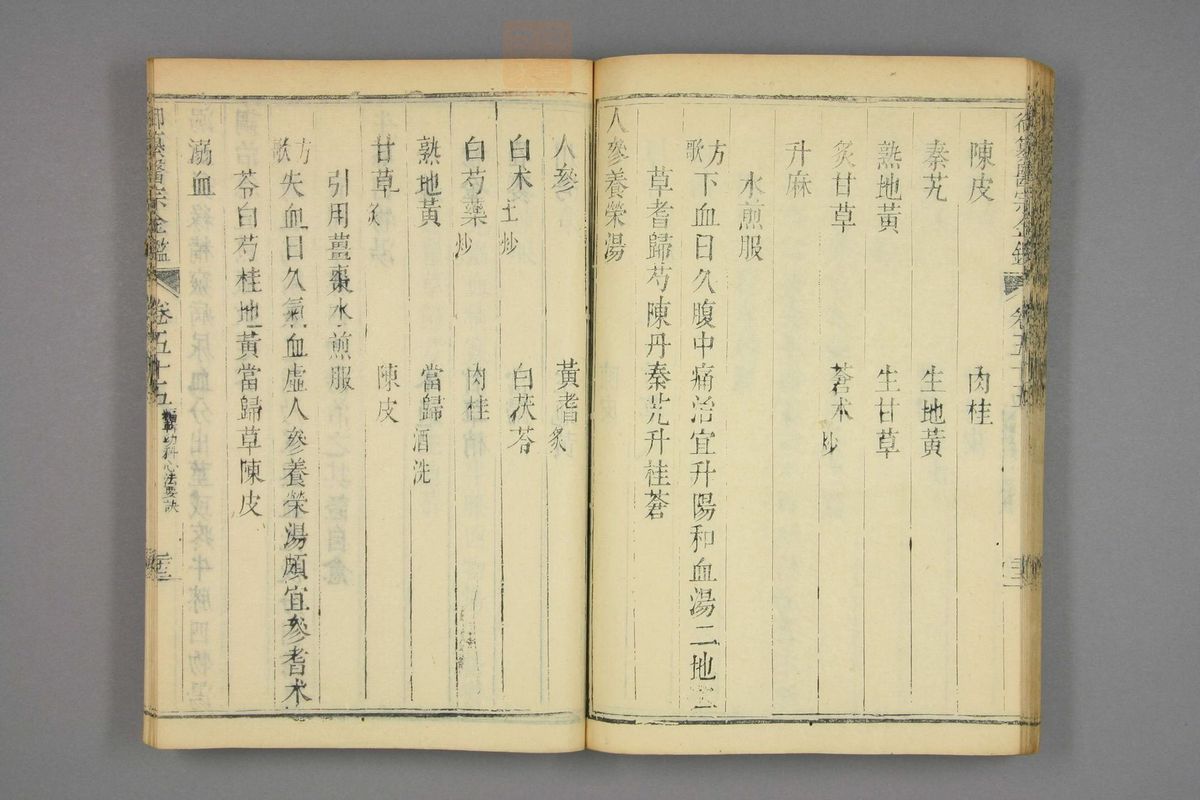 御纂醫宗金鑑 卷五十五
陳皮 肉桂
秦艽 生地黃
熟地黃 生甘草
炙甘草 蒼朮炒
升麻
水煎服
方歌 下血日久腹中痛治宜升陽和血湯二地
草耆歸芍陳丹秦艽升桂蒼
人參養榮湯
人參 黃耆炙
白朮土炒 白茯苓
白芍藥炒 肉桂
熟地黃 當歸酒洗
甘草炙 陳皮
引用薑棗水煎服
方歌 失血日久氣血虛人參養榮湯頗宜參耆朮
苓白芍桂地黃當歸草陳皮
溺血
御纂醫宗金鑑 卷五十五 編輯幼科心法要訣